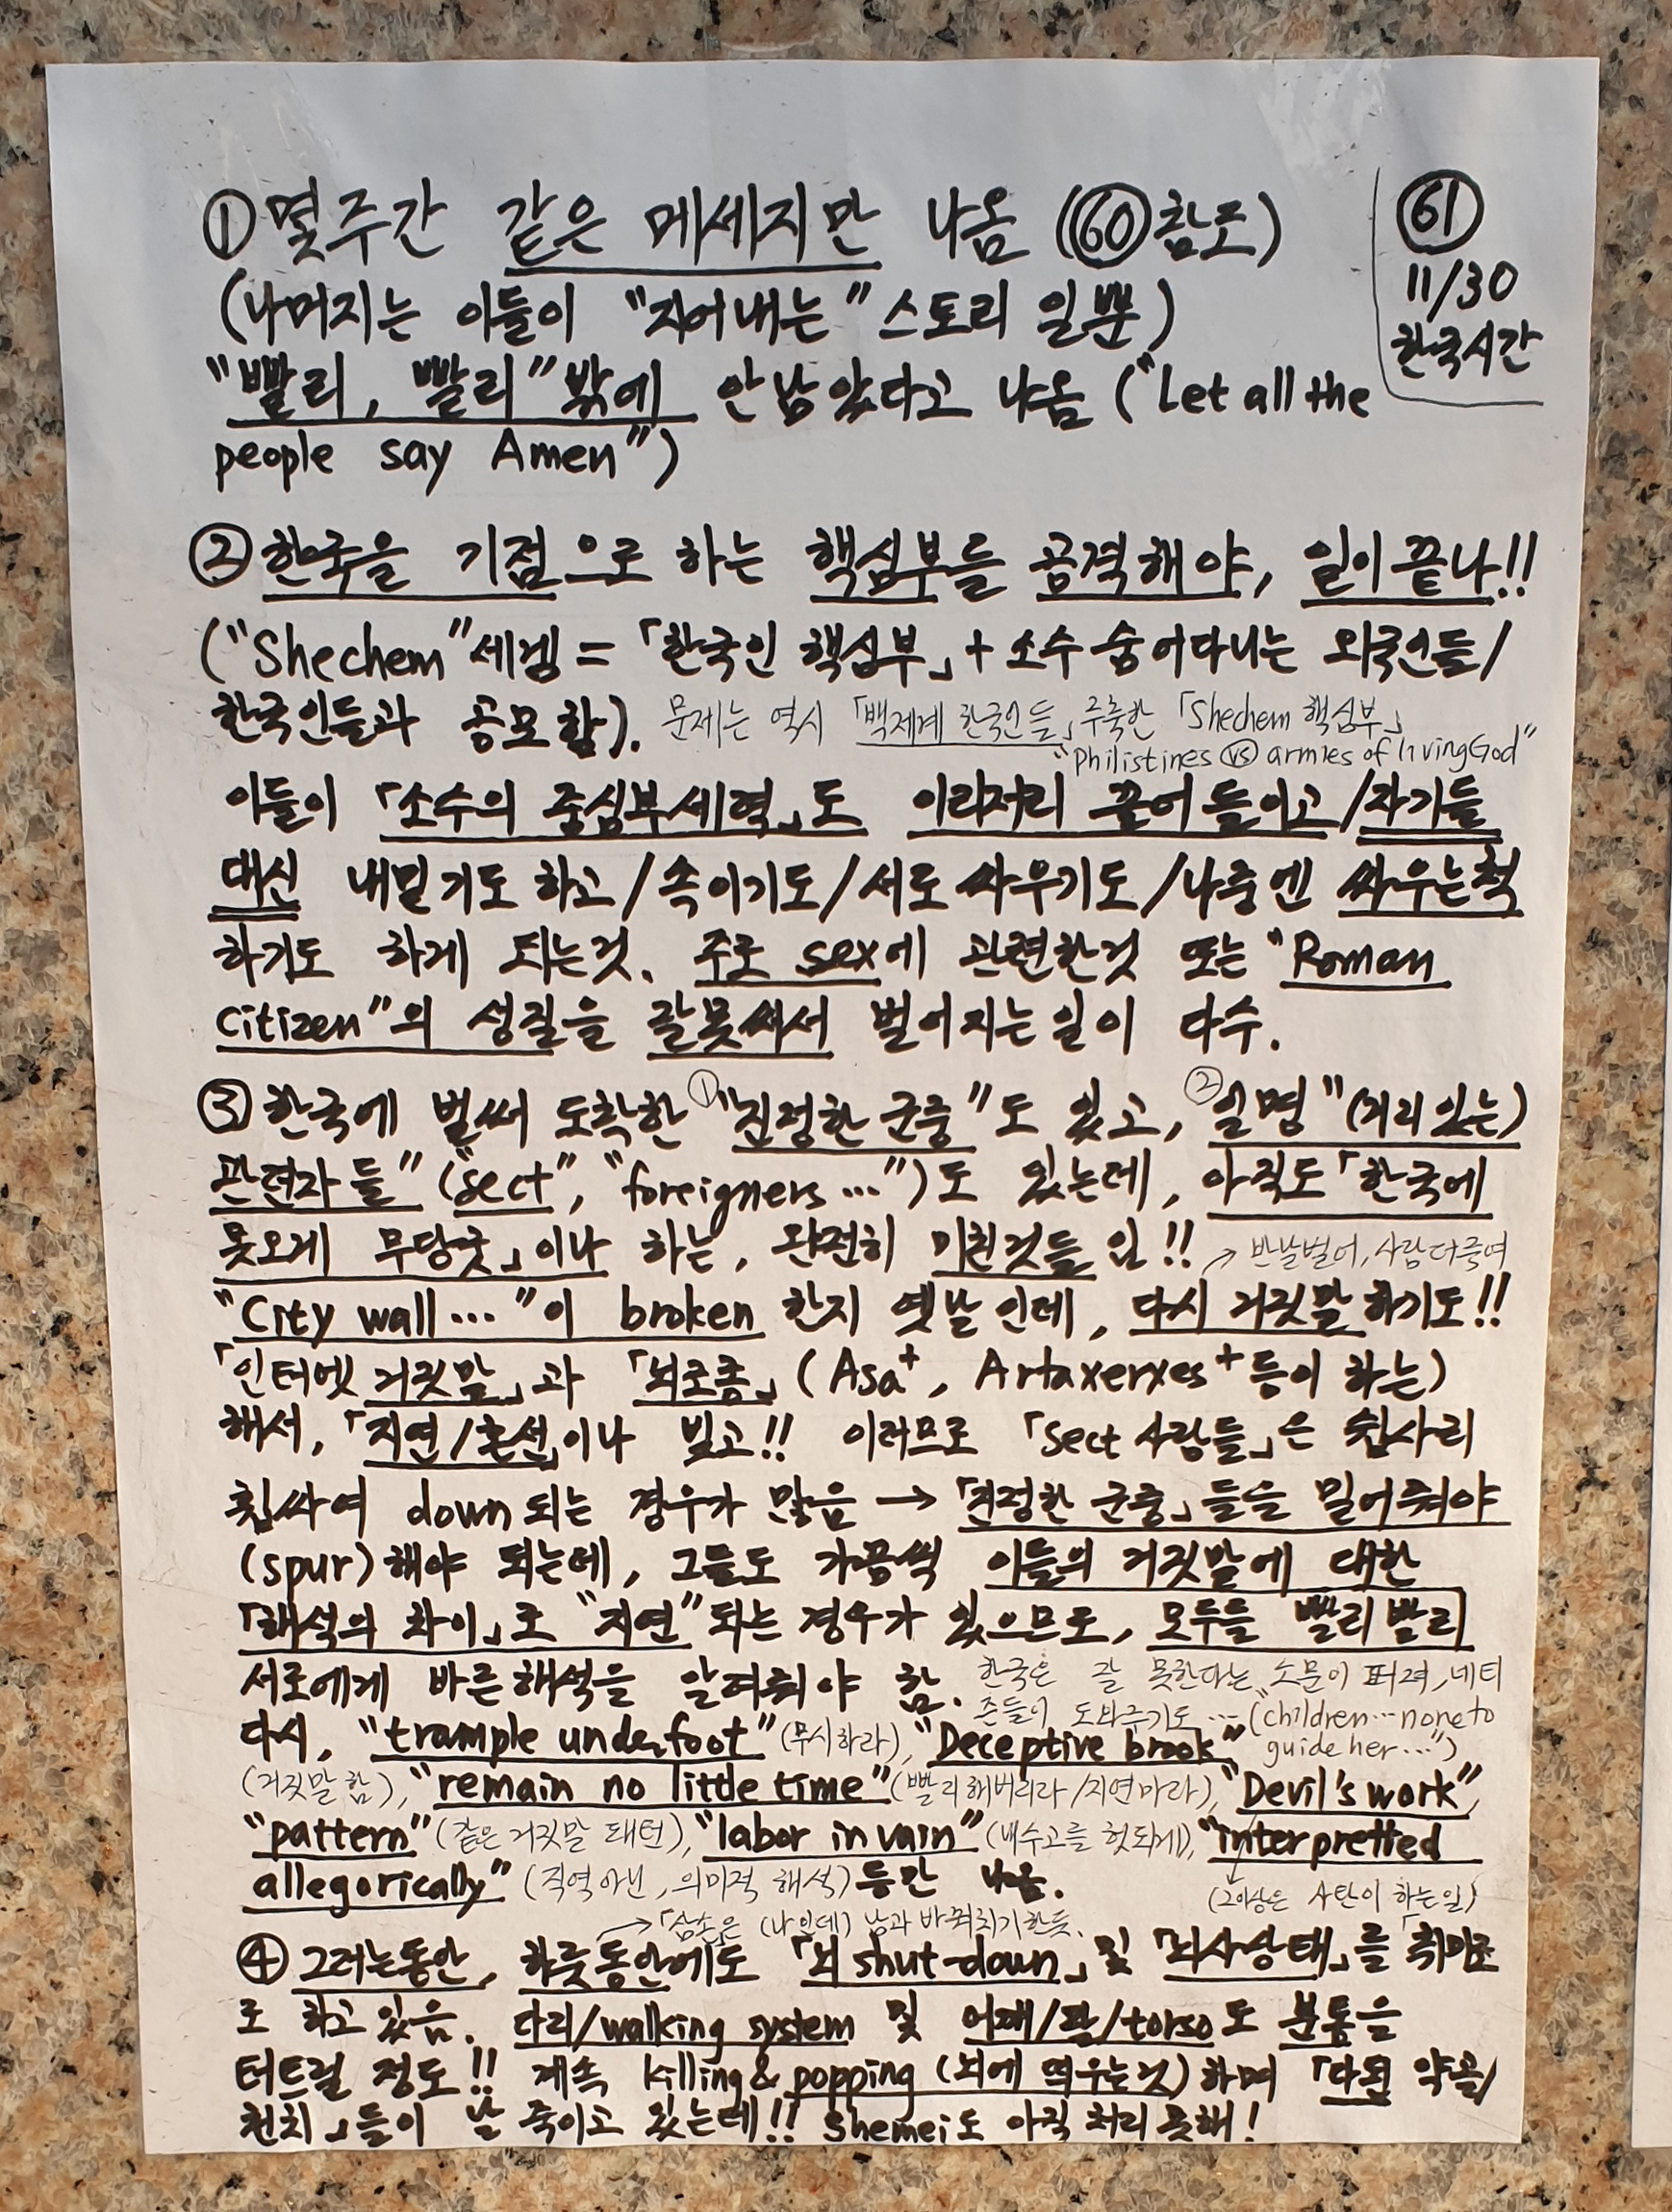 ① 몇주간 같은 메세지만 나옴 (60 참조)
61
11/30
한국시간
(나머지는 이들이 "지어내는" 스토리 일뿐)
"빨리, 빨리" 밖에 안남았다고 나옴 ("Let all the
people say Amen")
② 한국을 기점으로 하는 핵심부들 공격해야, 일이 끝나!!
("Shechem" 세겜 = 「한국인 핵심부」 + 소수 숨어다니는 외국인들/
한국인들과 공모함). 문제는 역시 「백제계 한국인들」 주축한 「Shechem 핵심부」
"Philistines vs armies of livingGod"
이들이 「소수의 중심부세력」도 이리저리 끌어들이고/자기들
대신 내밀기도 하고/속이기도/서로 싸우기도/나중엔 싸우는척
하기도 하게 되는것. 주로 sex에 관련한것 또는 "Roman
citizen"의 성질을 잘못써서 벌어지는 일이 다수.
③ 한국에 벌써 도착한 ① "진정한 군중"도 있고, ② 일명 "(거리있는)
관련자들" ("sect", "foreigners…")도 있는데, 아직도 「한국에
못오게 무당굿」이나 하는, 완전히 미친것들 임!! → 반날벌어, 사람더죽여
"City wall…"이 broken 한지 옛날인데, 다시 거짓말하기도!!
「인터넷 거짓말」과 「뇌로홈」 (Asa+, Artaxerxes+ 등이 하는)
해서, 「지연/혼선」이나 빚고!! 이러므로 「sect 사람들」은 쉽사리
휩싸여 down되는 경우가 많음 → 「진정한 군중」들을 밀어줘야
(spur)해야 되는데, 그들도 가끔씩 이들의 거짓말에 대한
「해석의 차이」로 "지연"되는 경우가 있으므로, 모두들 빨리빨리
서로에게 바른해석을 알려줘야 함. 한국은 잘 못한다는 소문이 퍼져, 네티
즌들이 도와주기도 … ("children…none to
guide her…")
다시, "trample underfoot" (무시하라), "Deceptive brook"
(거짓말함), "remain no little time" (빨리해버리라/지연마라), "Devil's work",
"pattern" (같은거짓말 패턴), "labor in vain" (내수고를 헛되게), "interpretted
allegorically" (직역아닌, 의미적 해석) 등만 나옴.
(그이상은 사탄이 하는일)
→ 「삼손은 (나인데) 남과 바꿔치기한듯.
④ 그러는동안, 하룻동안에도 「뇌 shut-down」 및 「뇌사상태」를 취미로
로 하고 있음. 다리/walking system 및 어깨/팔/torso도 분통을
터트릴 정도!! 계속 killing & popping (뇌에 띄우는것)하며 「다된 약골/
천치」들이 날 죽이고 있는데!! Shemei도 아직 처리 못해!